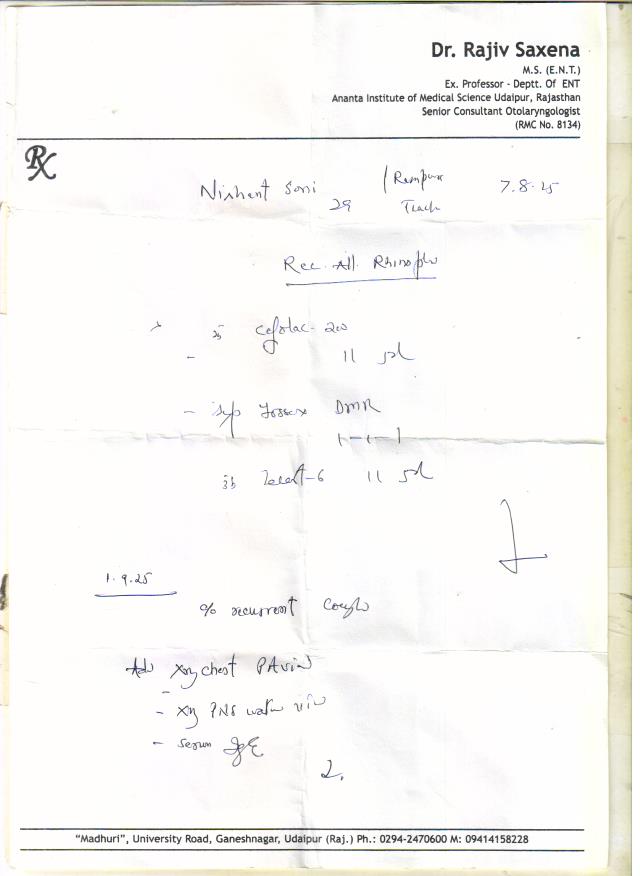 Dr. Rajiv Saxena
M.S. (E.N.T.)
Ex. Professor - Deptt. Of ENT
Ananta Institute of Medical Science Udaipur, Rajasthan
Senior Consultant Otolaryngologist
(RMC No. 8134)
Rx
Nishant Soni 7.8.25
29
Rec. All.
200
11 5d
DMR
1-1-1
-6 11 5d
1.9.25
c/o recurrent cough
Adv Xray chest PA view
- Xray PNS water view
- serum IgE
"Madhuri", University Road, Ganeshnagar, Udaipur (Raj.) Ph.: 0294-2470600 M: 09414158228